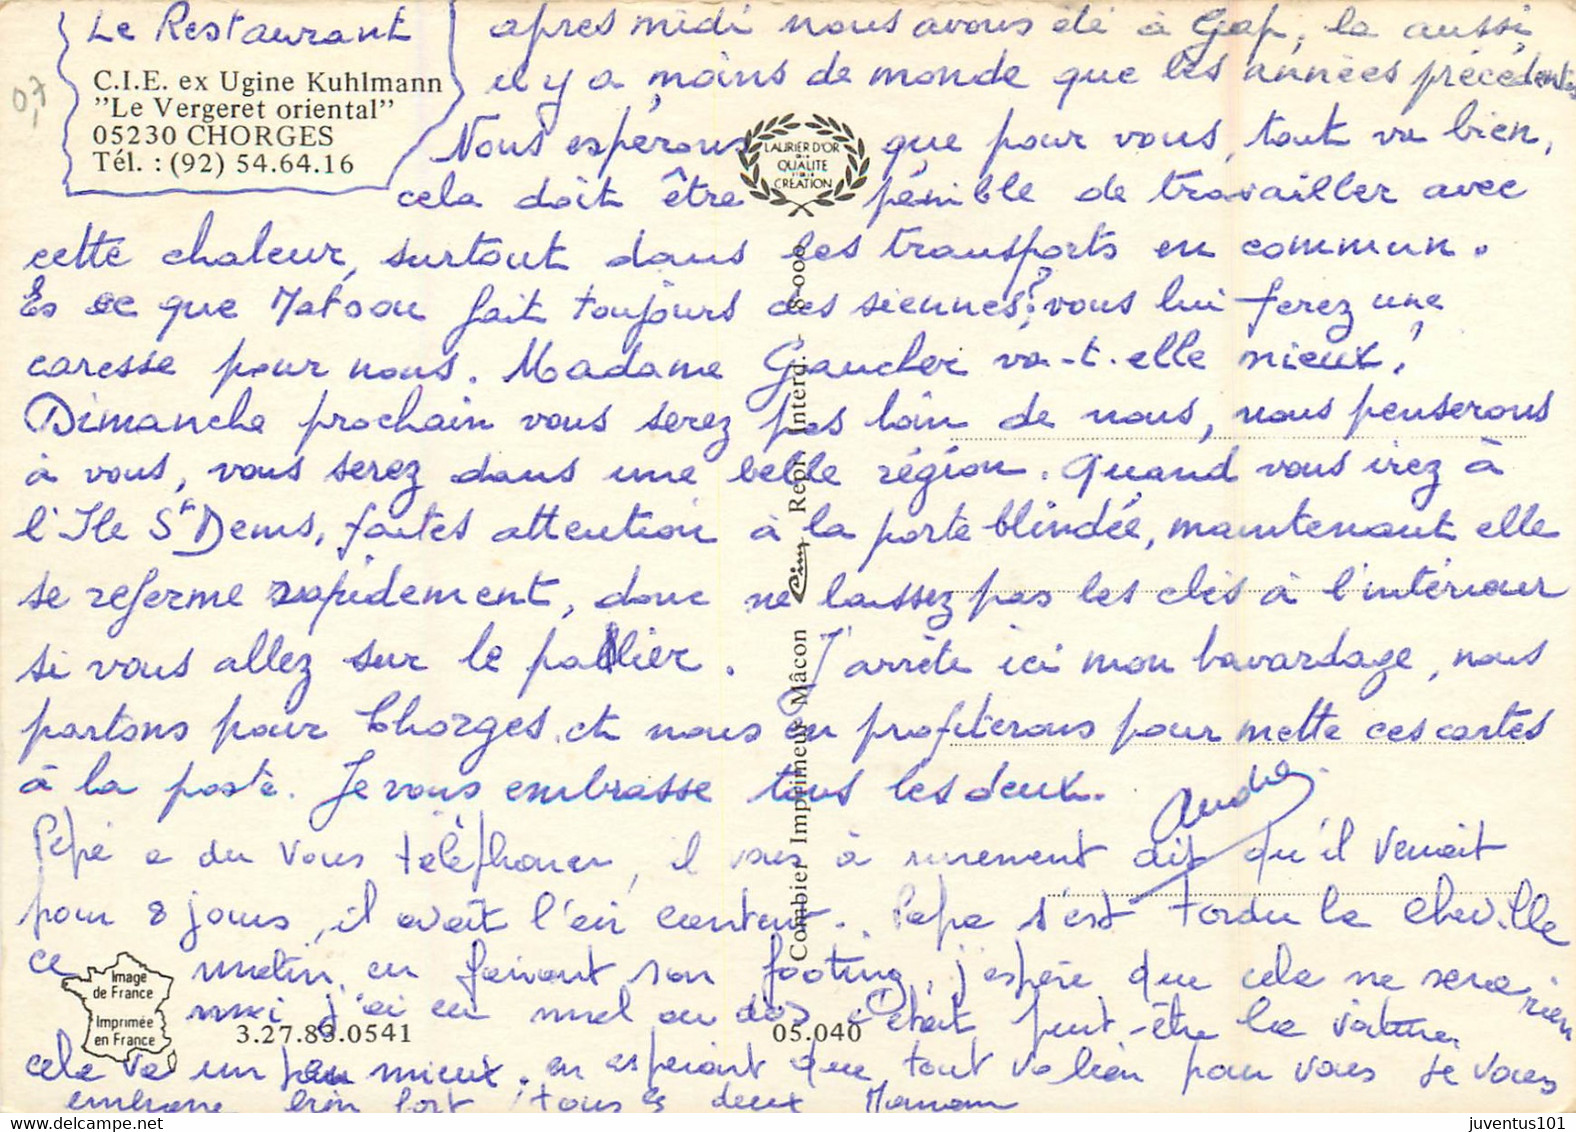 Le Restaurant
C.I.E. ex Ugine Kuhlmann
"Le Vergeret oriental"
05230 CHORGES
Tél. : (92) 54.64.16
0,7
apres midi nous avons été à Gap, la aussi
il y a moins de monde que les années précédentes
Nous espérons que pour vous, tout va bien,
cela doit être pénible de travailler avec
cette chaleur, surtout dans les transports en commun.
Es ce que Matsou fait toujours des siennes? vous lui ferez une
caresse pour nous. Madame Gaucher va-t-elle mieux?
Dimanche prochain vous serez pas loin de nous, nous penserons
à vous, vous serez dans une belle région. Quand vous irez à
l'Ile St Denis, faites attention à la porte blindée, maintenant elle
se referme rapidement, donc ne laissez pas les clés à l'intérieur
si vous allez sur le pallier. J'arrête ici mon bavardage, nous
partons pour Chorges, et nous en profiterons pour mettre ces cartes
à la poste. Je vous embrasse tous les deux.
Pépé a du vous téléphoner, il vous à surement dit qu'il venait
pour 8 jours, il avait l'air content. Papa s'est tordu la cheville
ce matin en faisant son footing, j'espère que cela ne sera rien
moi j'ai eu mal au dos c'était peut-être la voiture
cela va un peu mieux. en espérant que tout va bien pour vous je vous
embrasse bien fort tous les deux Maman
LAURIER D'OR
QUALITE
CREATION
Combier Imprimeur Mâcon
Cim
Repr. Interd. - 8-000
Image
de France
Imprimée
en France
3.27.83.0541
05.040
juventus101